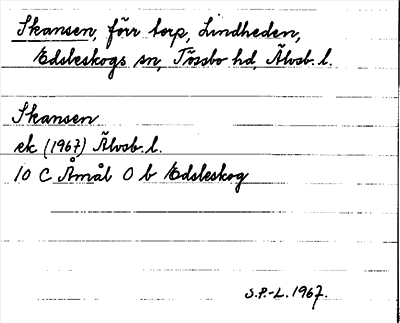 Skansen, förr torp, Lindheden,
Edsleskogs sn, Tössbo hd, Älvsb. l.
Skansen
ek (1967) Älvsb. l.
10 C Åmål O b Edsleskog
S.P.-L. 1967.